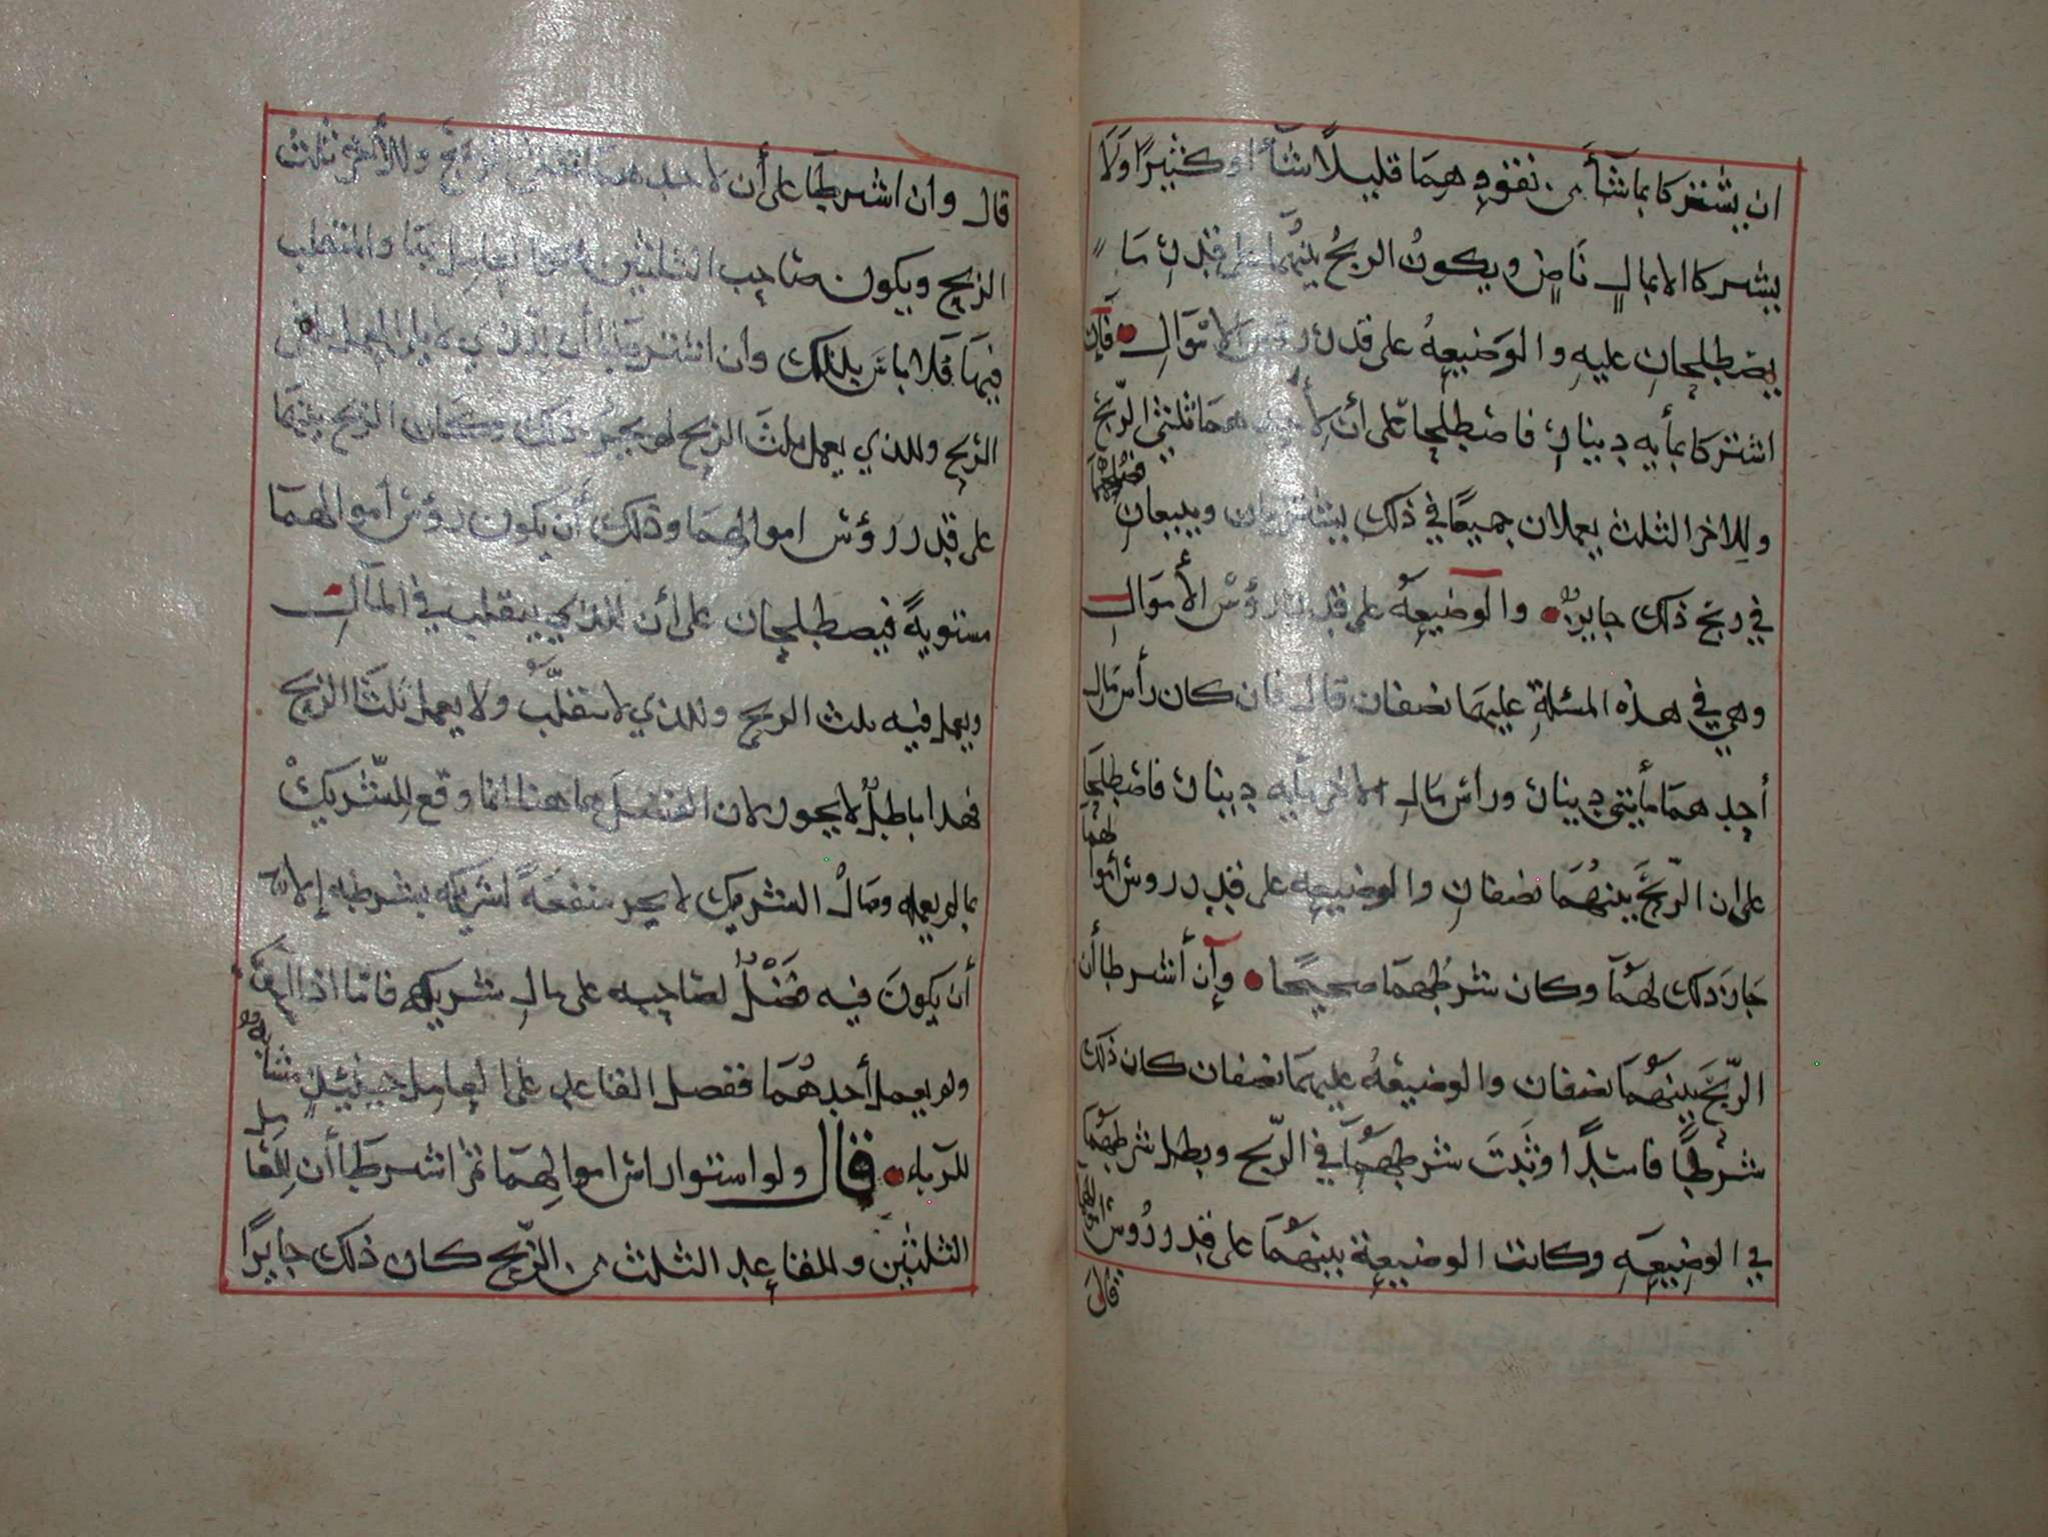 ان يشتركا بما شآأ من نقودهما قليلاً شآأ او كثيرًا ولا
يشتركا الا بمالٍ ناضٍ ويكونُ الربحُ بينهما على قدر ما
يصطلحانِ عليهِ والوَضيعهُ على قدر رؤس الاموالِ فإن
اشتركا بمأيه دينار فاصطلحا على أن لأحدهما ثلثي الرّبح
وللاخر الثلث يعملان جميعًا في ذلك يشتريان ويبيعان فضلهما
في ربح ذلك جايزٌ والوضيعهُ على قدر رؤس الأموالِ
وهي في هذه المسئلةِ عليهما نصفان قال فان كان رأس مال
أحدهما مأيتي دينار ورأس مال الاخر مأيه دينار فاصطلحا
على ان الرّبحَ بينهما نصفانِ والوضيعه على قدر روس أموالهما
جاز ذلك لهُمآ وكان شرطُهما صحيحًا وإن أشرطا أن
الرّبحَ بينهما نصفان والوضيعهُ عليهما نصفان كان ذلك
شرطًا فاسدًا وثبتَ شرطهمآ في الرّبح وبطل شرطهما
في الوضيعهِ وكانت الوضيعة بينهُما على قدر رُوس أموالهما
قال
قال وان اشرطا على أن لاحدهما ثلثي الربح وللأخر ثلث
الربح ويكون صاحب الثلثين العامل بها والمتقلب
فيها فلا بأس بذلك وان اشترطا أن للذي لا يلي العمل
الربح وللذي يعمل ثلثَ الربح لم يجز ذلك وكان الربح بينهما
على قدر رؤس اموالهما وذلك أن يكون رؤس أموالهما
مستويةً فيصطلحان على أن للذي يتقلب في المآلِ
ويعمل فيه ثلث الربح وللذي لا يتقلّبُ ولا يعمل ثلثا الربح
فهذا باطلٌ لا يجوز لان الفضل هاهنا انما وقع للشريكْ
بما لم يعمله ومالُ الشريك لا يجر منفعةً لشريكه بشرطه إلا
أن يكونَ فيه فضلٌ لصاحبه على مالِ شريكه فامّا اذا اتفق
ولم يعمل أحدهُما ففضل القاعد على العامل حينئذٍ مشابه
للرّباء قال ولو استوا راس اموالهما ثم اشرطا أن للعامل
الثلثين وللقاعد الثلث من الرّبح كان ذلك جايزًا